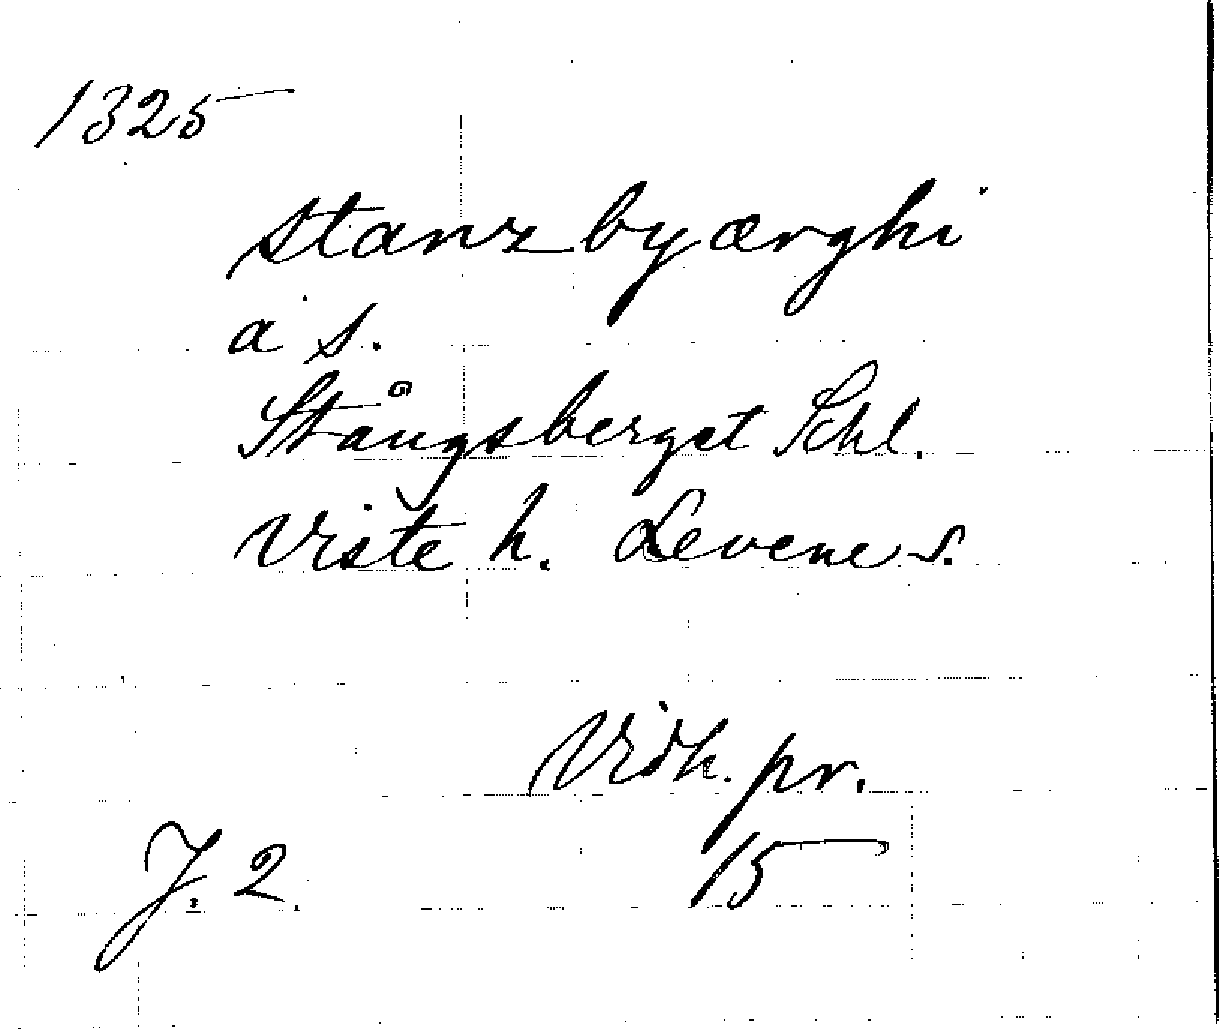 1325
stanzbyærghi
a s.
Stångsberget Schl.
Viste h. Levene s.
Vidh. pr.
J. 2. 15